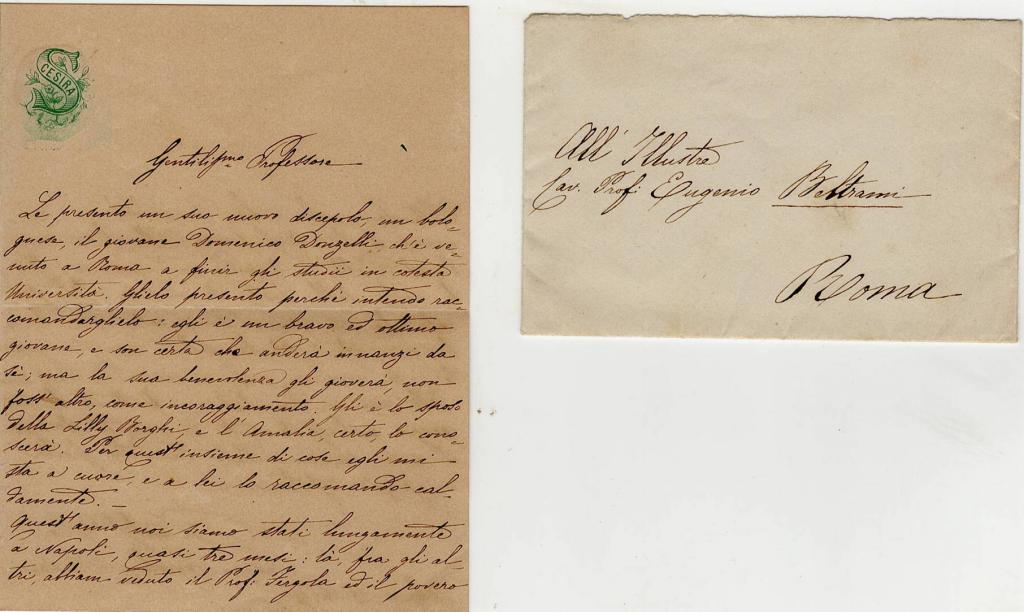 CESIRA
Gentiliss.mo Professore
Le presento un suo nuovo discepolo, un bolo-
gnese, il giovane Domenico Donzelli, ch'è ve-
nuto a Roma a finir gli studii in cotesta
Università. Glielo presento perchè intendo rac-
comandarglielo: egli è un bravo ed ottimo
giovane, e son certa che anderà innanzi da
sè; ma la sua benevolenza gli gioverà, non
foss'altro, come incoraggiamento. Gli è lo sposo
della Lilly Borghi e l'Amalia, certo, lo cono-
scerà. Per quest'insieme di cose egli mi
sta a cuore, e a lei lo raccomando cal-
damente. —
Quest'anno noi siamo stati lungamente
a Napoli, quasi tre mesi: là, fra gli al-
tri, abbiam veduto il Prof: Fergola ed il povero
All' Illustre
Cav. Prof: Eugenio Beltrami
Roma